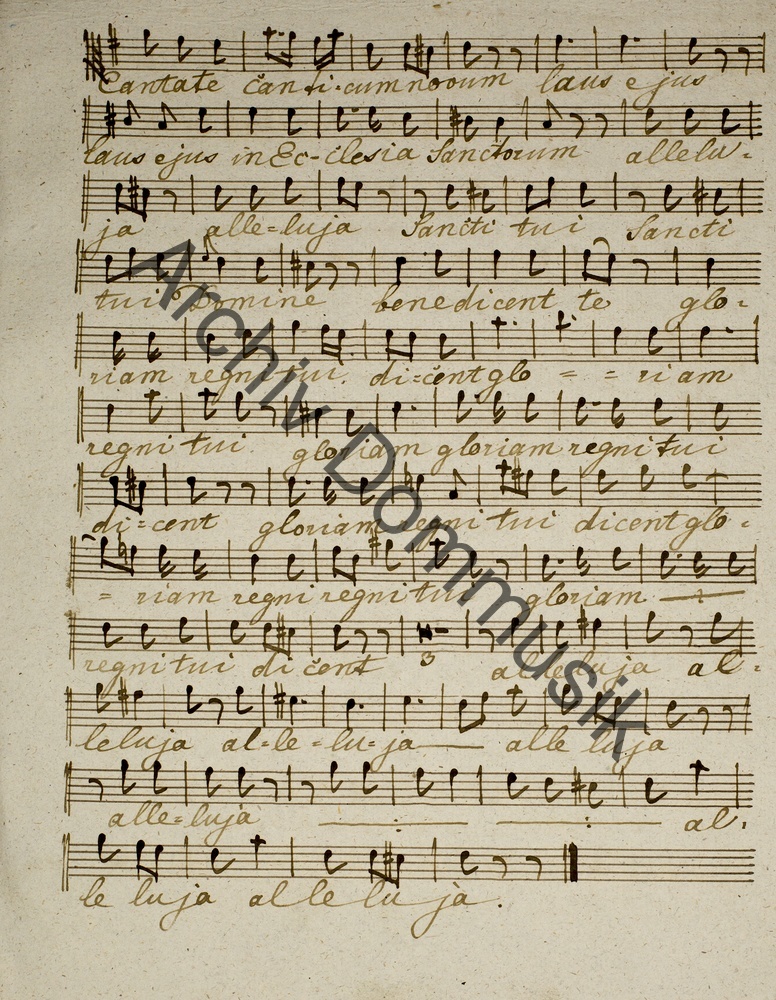 Cantate canti-cum novum laus ejus
laus ejus in Ec-clesia Sanctorum allelu-
ja alle=luja Sancti tui Sancti
tui Domine benedicent te glo-
riam regni tui. di=cent glo = = riam
regni tui gloriam gloriam regni tui
di=cent gloriam regni tui dicent glo-
= riam regni regni tui gloriam
regni tui dicent 3 alleluja al-
leluja al=le-lu=ja alle luja
alle=luja al-
le luja alleluja.
Archiv Dommusik